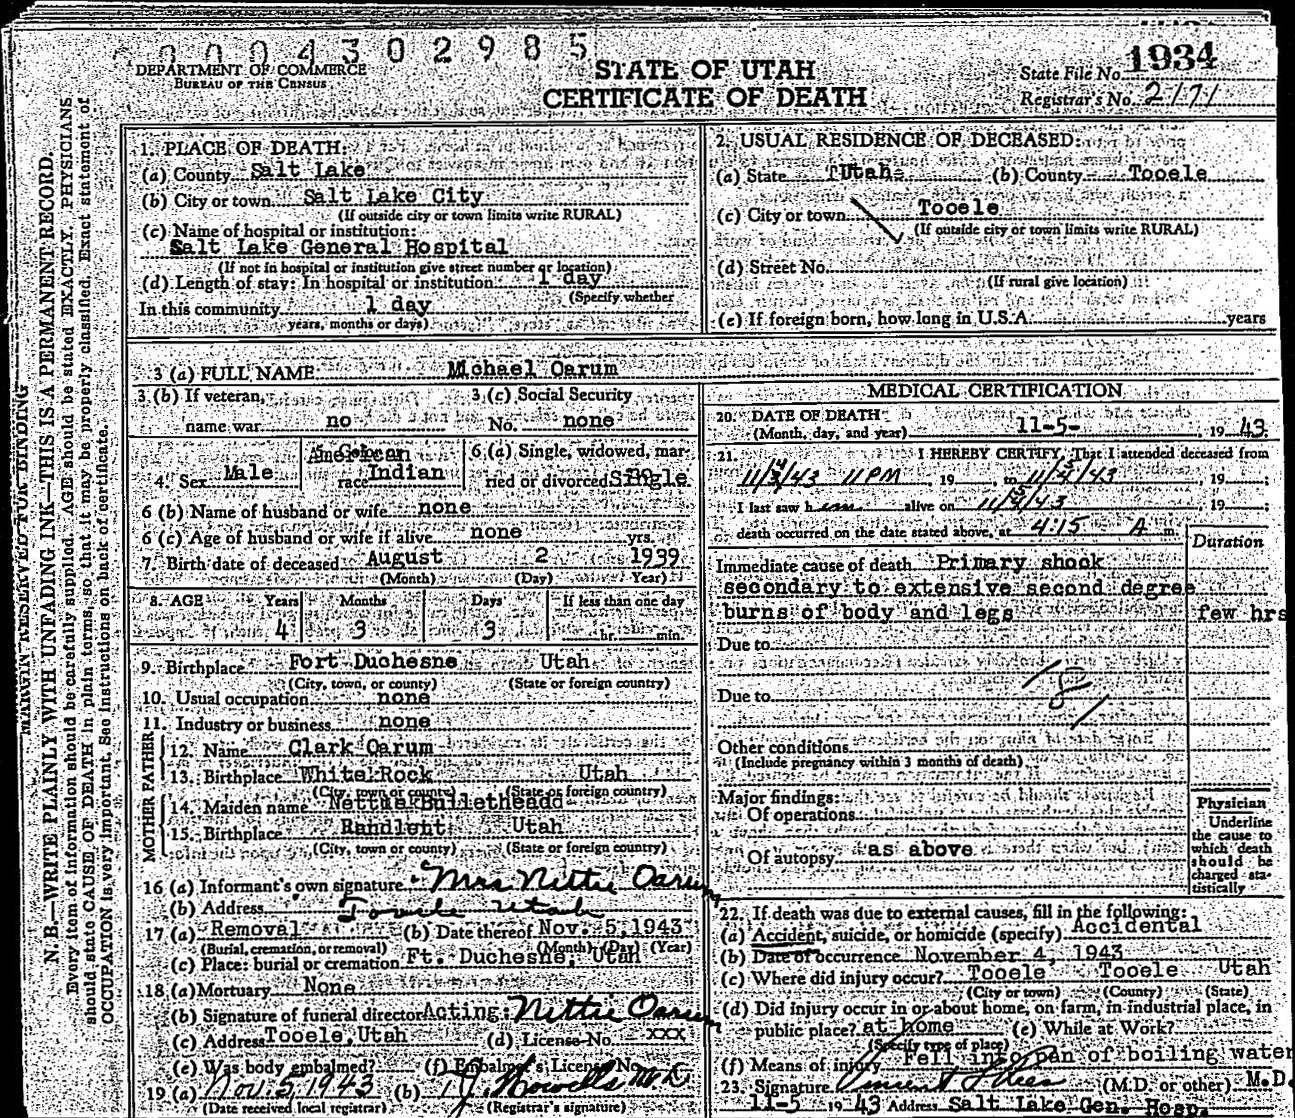 0004302985
DEPARTMENT OF COMMERCE
BUREAU OF THE CENSUS
STATE OF UTAH
CERTIFICATE OF DEATH
State File No. 1934
Registrar's No. 2171
MARGIN RESERVED FOR BINDING
N. B.—WRITE PLAINLY WITH UNFADING INK—THIS IS A PERMANENT RECORD.
Every item of information should be carefully supplied. AGE should be stated EXACTLY. PHYSICIANS
should state CAUSE OF DEATH in plain terms, so that it may be properly classified. Exact statement of
OCCUPATION is very important. See instructions on back of certificate.
1. PLACE OF DEATH:
(a) County Salt Lake
(b) City or town Salt Lake City
(If outside city or town limits write RURAL)
(c) Name of hospital or institution:
Salt Lake General Hospital
(If not in hospital or institution give street number or location)
(d) Length of stay: In hospital or institution 1 day
(Specify whether
In this community 1 day
years, months or days)
2. USUAL RESIDENCE OF DECEASED:
(a) State Utah (b) County Tooele
(c) City or town Tooele
(If outside city or town limits write RURAL)
(d) Street No.
(If rural give location)
(e) If foreign born, how long in U.S.A. years
3 (a) FULL NAME Michael Oarum
3 (b) If veteran, name war no
3 (c) Social Security No. none
4. Sex Male
race Indian
6 (a) Single, widowed, married or divorced Single
6 (b) Name of husband or wife none
6 (c) Age of husband or wife if alive none yrs.
7. Birth date of deceased August 2 1939
(Month) (Day) Year)
8. AGE Years Months Days If less than one day
4 3 3 hr. min.
9. Birthplace Fort Duchesne Utah
(City, town, or county) (State or foreign country)
10. Usual occupation none
11. Industry or business none
FATHER
12. Name Clark Oarum
13. Birthplace White Rock Utah
(City, town or county) (State or foreign country)
MOTHER
14. Maiden name
15. Birthplace Randlent Utah
(City, town or county) (State or foreign country)
16 (a) Informant's own signature Mrs Nettie Oarum
(b) Address Tooele Utah
17 (a) Removal (b) Date thereof Nov. 5, 1943
(Burial, cremation, or removal) (Month) (Day) (Year)
(c) Place: burial or cremation Ft. Duchesne, Utah
18 (a) Mortuary None
(b) Signature of funeral director Acting: Nettie Oarum
(c) Address Tooele, Utah (d) License No. xxx
(e) Was body embalmed? (f) Embalmer's License No.
19 (a) Nov. 5, 1943 (b)
(Date received local registrar) (Registrar's signature)
MEDICAL CERTIFICATION
20. DATE OF DEATH
(Month, day, and year) 11-5- , 19 43
21. I HEREBY CERTIFY, That I attended deceased from
11/3/43 11 PM , 19 , to 11/5/43 , 19 ;
I last saw h im alive on 11/5/43 , 19 ;
death occurred on the date stated above, at 4:15 A m.
Duration
Immediate cause of death Primary shock
secondary to extensive second degree
burns of body and legs few hrs
Due to
Due to
Other conditions
(Include pregnancy within 3 months of death)
Major findings:
Of operations
Of autopsy as above
Physician
Underline
the cause to
which death
should be
charged sta-
tistically
22. If death was due to external causes, fill in the following:
(a) Accident, suicide, or homicide (specify) Accidental
(b) Date of occurrence November 4, 1943
(c) Where did injury occur? Tooele Tooele Utah
(City or town) (County) (State)
(d) Did injury occur in or about home, on farm, in industrial place, in
public place? at home (e) While at Work?
(Specify type of place)
(f) Means of injury Fell into pan of boiling water
23. Signature (M.D. or other) M.D.
11-5 19 43 Address Salt Lake Gen. Hosp.